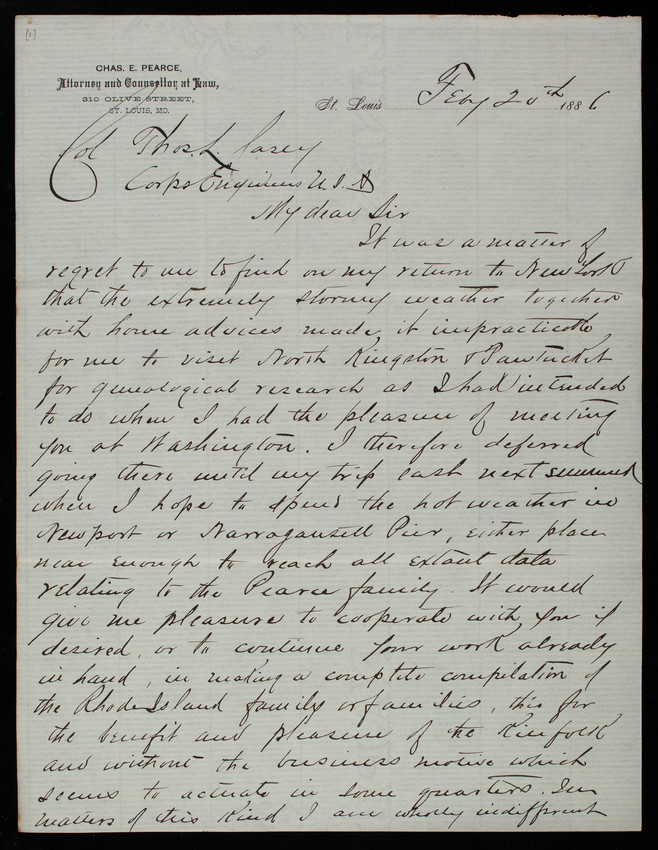 [1]
CHAS. E. PEARCE,
Attorney and Counsellor at Law,
310 OLIVE STREET,
ST. LOUIS, MO.
St. Louis Feby 20th 1886
Col Thos. L. Casey
Corps Engineers U.S.A
My dear Sir
It was a matter of
regret to me to find on my return to New York
that the extremely stormy weather together
with home advices made it impracticable
for me to visit North Kingston & Pawtucket
for genealogical research as I had intended
to do when I had the pleasure of meeting
you at Washington. I therefore deferred
going there until my trip east next summer
when I hope to spend the hot weather in
Newport or Narragansett Pier, either place
near enough to reach all extant data
relating to the Pearce family. It would
give me pleasure to cooperate with you if
desired, or to continue your work already
in hand, in making a complete compilation of
the Rhode Island family or families, this for
the benefit and pleasure of the Kinfolk
and without the business motive which
seems to actuate in some quarters. In
matters of this kind I am wholly indifferent